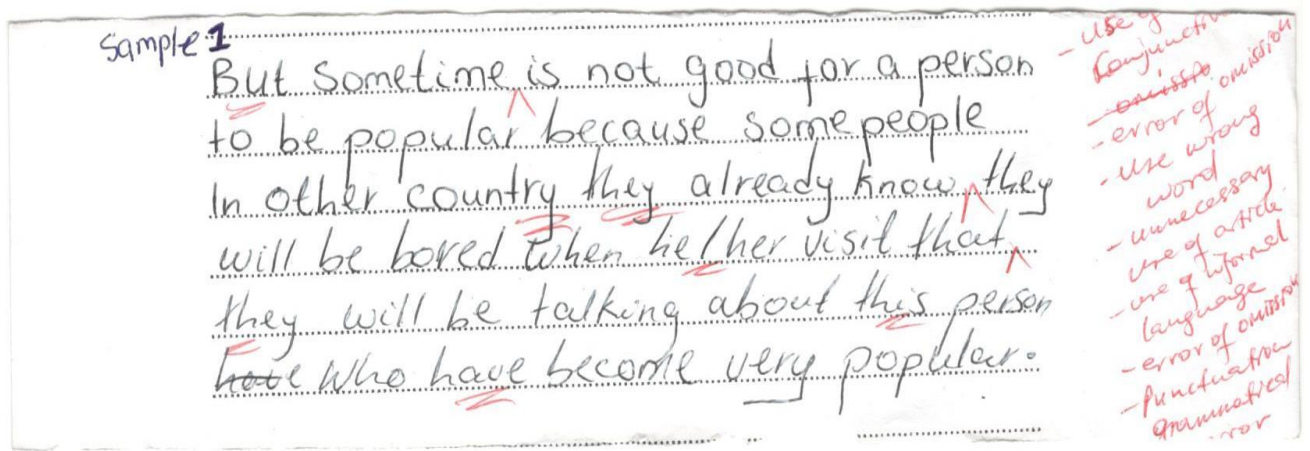 Sample 1
But Sometime is not good for a person
to be popular because some people
In other country they already know they
will be bored when he/her visit that
they will be talking about this person
who have become very popular.
- Use of
Conjunction
- error of omission
- Use wrong
word
- unnecessary
use of article
- use of informal
language
- error of omission
- Punctuation
grammatical